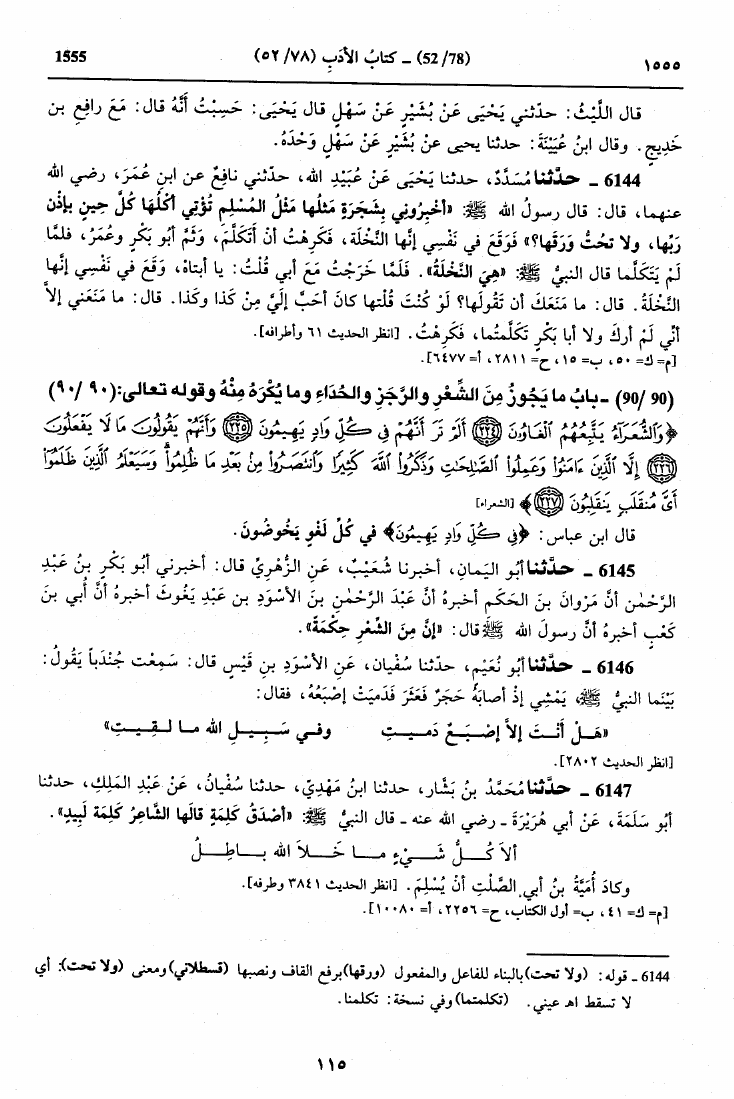 1555 (52/78) ـ كتابُ الأدَبِ (٥٢/٧٨) ١٥٥٥
قال اللَّيْثُ: حدّثني يَحْيَى عَنْ بُشَيْرٍ عَنْ سَهْلٍ قال يَحْيَى: حَسِبْتُ أنَّهُ قال: مَعَ رافِعِ بن
خَدِيجٍ. وقال ابنُ عُيَيْنَةَ: حدثنا يحيى عنْ بُشَيْرٍ عَنْ سَهْلٍ وَحْدَهُ.
6144 ـ حدَّثنا مُسَدَّدٌ، حدثنا يَحْيَى عَنْ عُبَيْدِ الله، حدّثني نافِعٌ عن ابنِ عُمَرَ، رضي الله
عنهما، قال: قال رسولُ الله ﷺ: «أخْبِرُوني بِشَجَرَةٍ مَثَلُها مَثَلُ المُسْلِمِ تُؤْتِي أُكْلَهَا كُلَّ حِينٍ بإذْنِ
رَبِّها، ولا تحُتُّ وَرَقها؟» فَوَقَعَ في نَفْسِي إنَّها النَّخْلَة، فَكَرِهْتُ أنْ أتَكَلَّمَ، وَثَمَّ أبُو بَكْرٍ وعُمَرُ، فلمَّا
لَمْ يَتَكَلَّما قال النبيُّ ﷺ: «هِيَ النَّخْلَةُ». فَلَمَّا خَرَجْتُ مَعَ أبي قُلْتُ: يا أبتاهْ، وَقَعَ في نَفْسِي إنَّها
النَّخْلَةُ. قال: ما مَنَعَكَ أن تَقُولَها؟ لَوْ كُنْتَ قُلْتَها كانَ أحَبَّ إلَيَّ مِنْ كَذا وكَذا. قال: ما مَنَعَني إلاَّ
أنِّي لَمْ أركَ ولا أبا بَكْرٍ تَكَلَّمتُما، فَكَرِهْتُ. [انظر الحديث ٦١ وأطرافه].
[م= ك= ٥٠، ب= ١٥، ح= ٢٨١١، أ= ٦٤٧٧].
(90/90) ـ بابُ ما يَجُوزُ مِنَ الشِّعْرِ والرَّجَزِ والحُدَاءِ وما يُكْرَهُ مِنْهُ وقوله تعالى: (٩٠/٩٠)
﴿وَالشُّعَرَاءُ يَتَّبِعُهُمُ الْغَاوُونَ (٢٢٤) أَلَمْ تَرَ أَنَّهُمْ فِي كُلِّ وَادٍ يَهِيمُونَ (٢٢٥) وَأَنَّهُمْ يَقُولُونَ مَا لَا يَفْعَلُونَ
(٢٢٦) إِلَّا الَّذِينَ ءَامَنُوا وَعَمِلُوا الصَّالِحَاتِ وَذَكَرُوا اللَّهَ كَثِيرًا وَانتَصَرُوا مِنْ بَعْدِ مَا ظُلِمُوا وَسَيَعْلَمُ الَّذِينَ ظَلَمُوا
أَيَّ مُنقَلَبٍ يَنقَلِبُونَ (٢٢٧)﴾ [الشعراء]
قال ابن عباس: ﴿فِي كُلِّ وَادٍ يَهِيمُونَ﴾ في كُلِّ لَغْوٍ يَخُوضُونَ.
6145 ـ حدَّثنا أبُو اليَمانِ، أخبرنا شُعَيْبٌ، عَنِ الزُّهْرِيِّ قال: أخبرني أبُو بَكْرِ بنُ عَبْدِ
الرَّحْمٰنِ أنَّ مَرْوانَ بنَ الحَكَمِ أخبرهُ أنَّ عَبْدَ الرَّحْمٰنِ بنَ الأسْوَدِ بن عَبْدِ يَغُوثَ أخبرهُ أنَّ أُبي بنَ
كَعْبٍ أخبرهُ أنَّ رسولَ الله ﷺ قال: «إنَّ مِنَ الشِّعْرِ حِكْمَةً».
6146 ـ حدَّثنا أبُو نُعَيْمٍ، حدّثنا سُفْيان، عَنِ الأسْوَدِ بنِ قَيْسٍ قال: سَمِعْت جُنْدَباً يَقُولُ:
بَيْنَما النبيُّ ﷺ، يَمْشِي إذْ أصابَهُ حَجَرٌ فَعَثَرَ فَدَمِيَتْ إصْبَعُهُ، فقال:
«هَـلْ أنْـتَ إلاَّ إصْـبَـعٌ دَمـيـتِ وفـي سَـبِـيـلِ الله مـا لـقِـيـتِ»
[انظر الحديث ٢٨٠٢].
6147 ـ حدَّثنا مُحَمَّدُ بنُ بَشَّار، حدثنا ابنُ مَهْدِيّ، حدثنا سُفْيانُ، عَنْ عَبْدِ المَلِكِ، حدثنا
أبُو سَلَمَةَ، عَنْ أبي هُرَيْرَةَ ـ رضي الله عنه ـ قال النبيُّ ﷺ: «أصْدَقُ كَلِمَةٍ قالَها الشَّاعِرُ كَلِمَة لَبِيدٍ».
ألاَ كُـــلُّ شَـــيْءٍ مـــا خَـــلاَ الله بـــاطِـــلُ
وكادَ أُمَيَّةُ بنُ أبي الصَّلْتِ أنْ يُسْلِمَ. [انظر الحديث ٣٨٤١ وطرفه].
[م= ك= ٤١، ب= أول الكتاب، ح= ٢٢٥٦، أ= ١٠٠٨٠].
6144 ـ قوله: (ولا تحت) بالبناء للفاعل والمفعول (ورقها) برفع القاف ونصبها (قسطلاني) ومعنى (ولا تحت): أي
لا تسقط اهـ عيني. (تكلمتما) وفي نسخة: تكلمنا.
١١٥